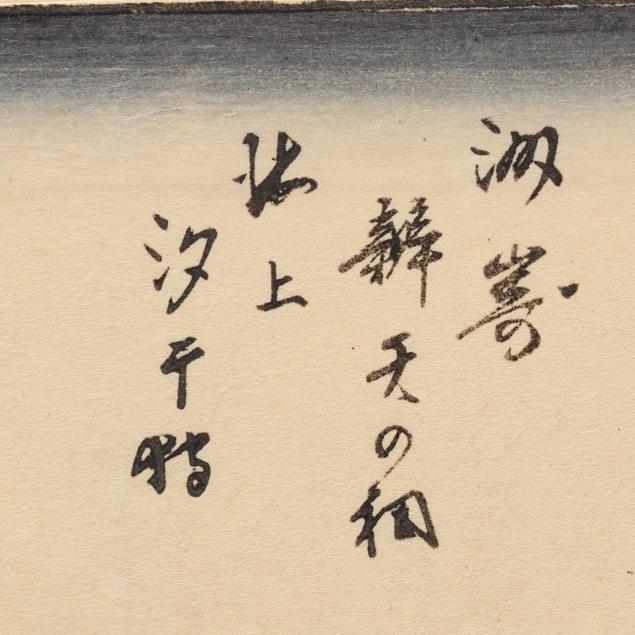 洲嵜
辨天の祠
海上
汐干狩